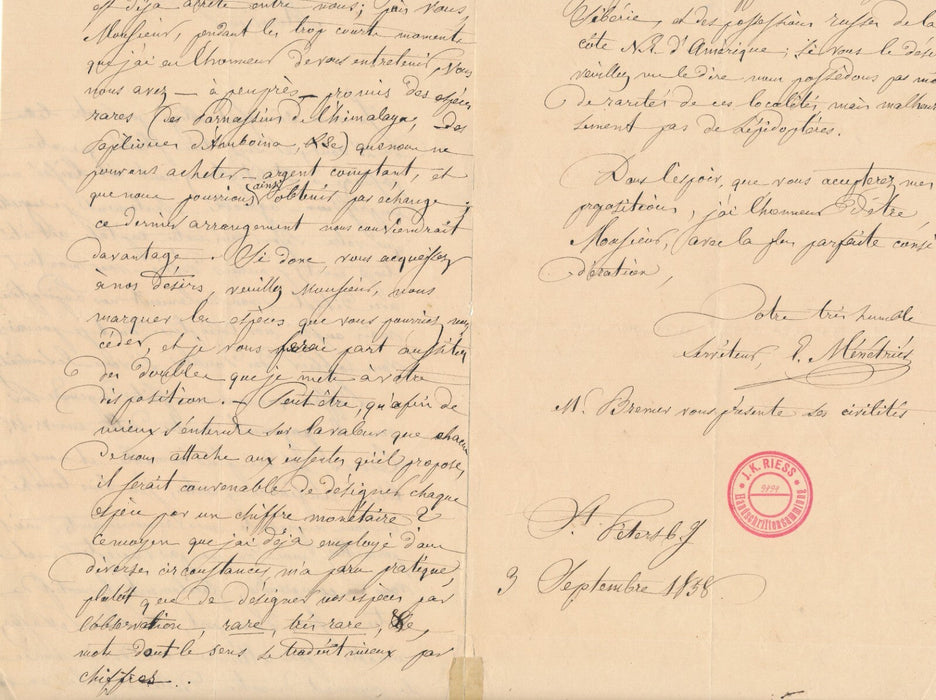 est déjà arrêté entre nous; puis vous,
Monsieur, pendant les trop courts moments
que j'ai eu l'honneur de vous entretenir, vous
nous avez — à peu près — promis des espèces
rares (des Parnassius de l'himalaya, des
Papilions d'Amboina, &c) que nous ne
pouvons acheter — argent comptant, et
que nous pourrions ainsi obtenir par échange;
ce dernier arrangement nous conviendrait
davantage. Si donc, vous acquiesçez
à nos désirs, veuillez Monsieur, nous
marquer les espèces que vous pourriez nous
céder, et je vous ferai part aussitôt
des doubles que je mets à votre
disposition. — Peut être, qu'afin de
mieux s'entendre sur la valeur que chacun
de nous attache aux insectes qu'il propose,
il serait convenable de désigner chaque
espèce par un chiffre monétaire?
Ce moyen que j'ai déjà employé dans
diverses circonstances, m'a paru pratique,
plutôt que de désigner nos espèces par
l'observation, rare, très rare, &c,
mots dont le sens se traduit mieux par
chiffres.
Sibérie, et des possessions russes de la
côte N.O. d'Amérique; si vous le dési
veuillez me le dire nous possédons pas ma
de raretés de ces localités mais malheur
sement pas de Lépidoptères.
Dans l'espoir, que vous accepterez mes
propositions, j'ai l'honneur d'être
Monsieur, avec la plus parfaite consi
dération,
Votre très humble
Serviteur, E. Ménétriés
Mr. Bremer vous présente ses civilités
J. K. RIESS
Handschriftensammlung
St. Petersb.g
3 Septembre 1858.